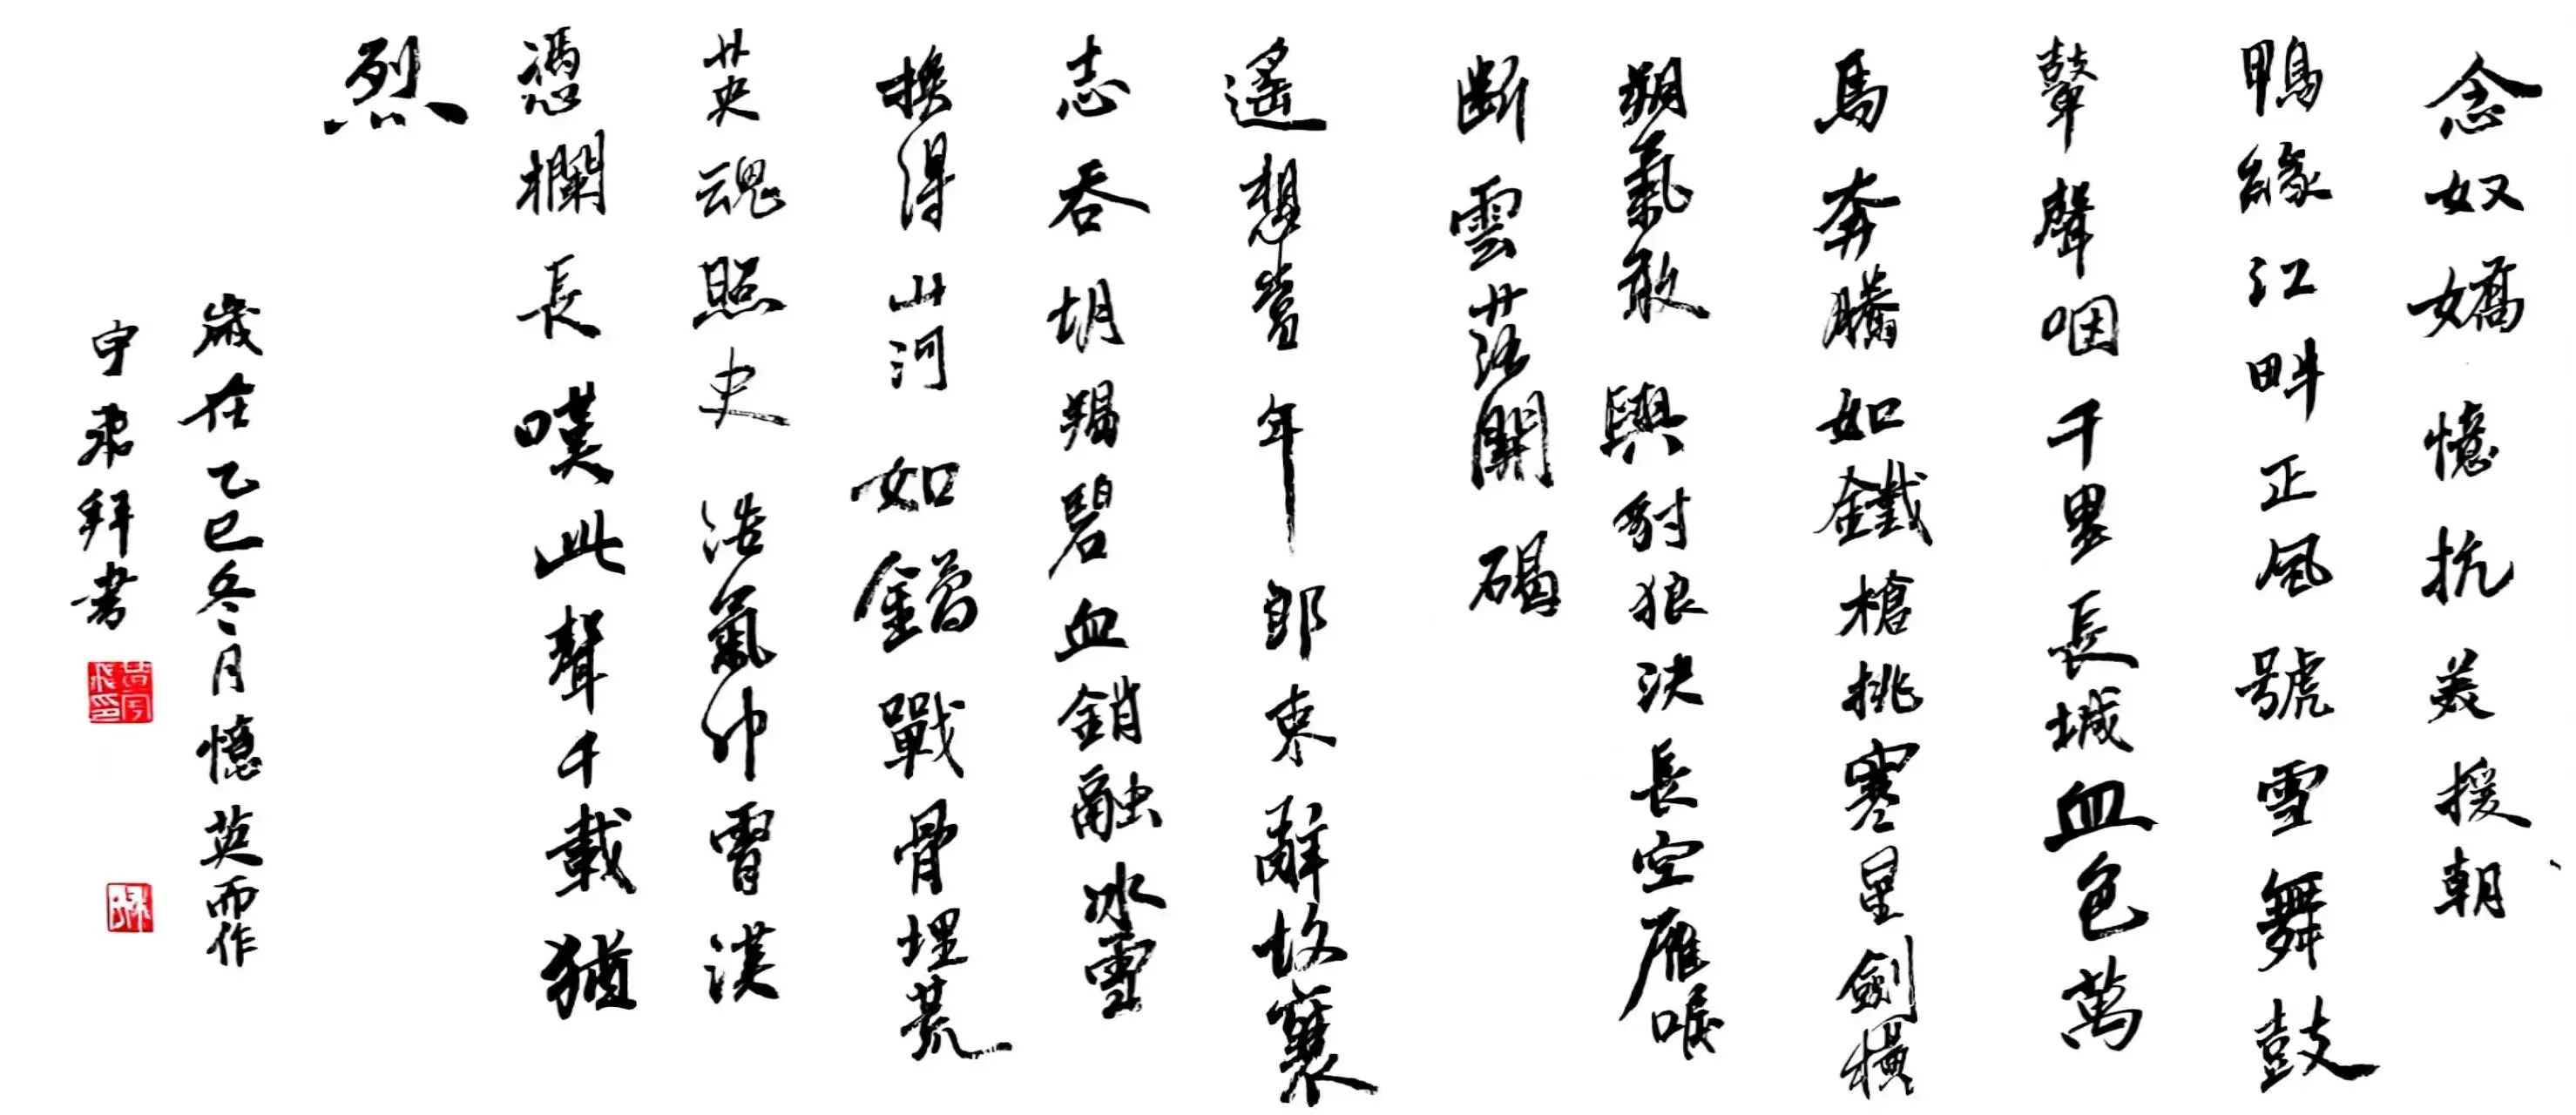 念奴嬌 憶抗美援朝
鴨緣江畔正風號雪舞鼓
鼙聲咽千里長城血色萬
馬奔騰如鐵槍挑寒星劍橫
朔氣敢與豺狼決長空雁唳
斷雲落關碣
遙想當年郎束辭故裏
志吞胡羯碧血銷融冰雪
換得山河如鑄戰骨埋荒
英魂照史浩氣沖霄漢
憑欄長嘆此聲千載猶
烈
歲在乙巳冬月憶英而作
宇飛拜書
黃宇飛印